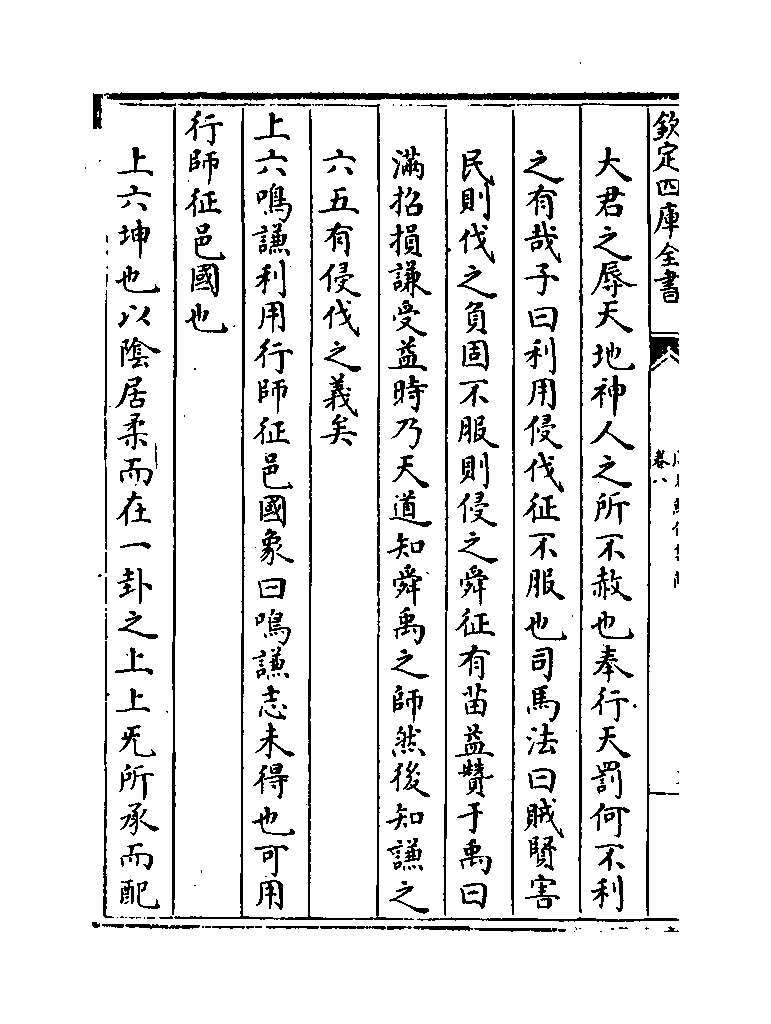 欽定四庫全書
卷八
大君之辱天地神人之所不赦也奉行天罰何不利
之有哉子曰利用侵伐征不服也司馬法曰賊賢害
民則伐之負固不服則侵之舜征有苗益贊于禹曰
滿招損謙受益時乃天道知舜禹之師然後知謙之
六五有侵伐之義矣
上六鳴謙利用行師征邑國象曰鳴謙志未得也可用
行師征邑國也
上六坤也以陰居柔而在一卦之上上旡所承而配